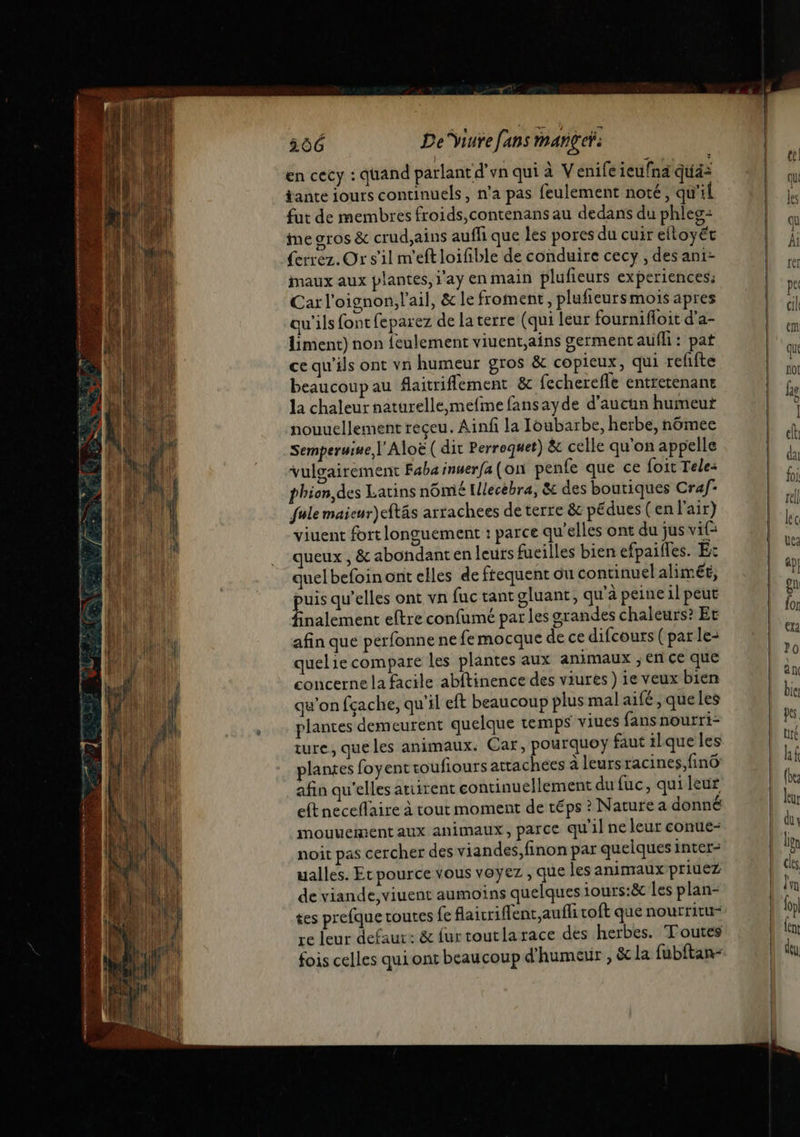 206 De viure ſans manger.
en cecy : quand parlant d'vn qui à Veniſe ieuſna quā-
tante iours continuels, n'a pas ſeulement noté, qu'il
fut de membres froids, contenans au dedans du phleg-
me gros & crud, ains auſſi que les pores du cuir eſtoyēt
ſerrez. Or s'il m'eſt loiſible de conduire cecy, des ani-
maux aux plantes, i'ay en main pluſieurs experiences;
Car l'oignon, l'ail, & le froment, pluſieurs mois apres
qu'ils ſont ſeparez de la terre (qui leur fourniſſoit d'a-
liment) non ſeulement viuent, ains germent auſſi : par
ce qu'ils ont vn humeur gros & copieux, qui reſiſte
beaucoup au flaitriſſement & ſechereſſe entretenant
la chaleur naturelle, meſme ſans ayde d'aucun humeur
nouuellement reçeu. Ainſi la Ioubarbe, herbe, nōmee
Semperuiue, l'Aloë ( dit Perroquet) & celle qu'on appelle
vulgairement Faba inuerſa (on penſe que ce ſoit Tele-
phion, des Latins nōmé Illecebra, & des boutiques Craſ-
ſule maieur) eſtās arrachees de terre & pēdues ( en l'air)
viuent fort longuement : parce qu'elles ont du jus viſ-
queux, & abondant en leurs fueilles bien eſpaiſſes. Et
quel beſoin ont elles de frequent ou continuel alimēt,
puis qu'elles ont vn ſuc tant gluant, qu'à peine il peut
finalement eſtre conſumé par les grandes chaleurs? Et
afin que perſonne ne ſe mocque de ce diſcours ( par le-
quel ie compare les plantes aux animaux, en ce que
concerne la facile abſtinence des viures ) ie veux bien
qu'on ſçache, qu'il eſt beaucoup plus mal aiſé, que les
plantes demeurent quelque temps viues ſans nourri-
ture, que les animaux. Car, pourquoy faut il que les
plantes ſoyent touſiours attachees à leurs racines, ſinō
afin qu'elles attirent continuellement du ſuc, qui leur
eſt neceſſaire à tout moment de tēps ? Nature a donné
mouuement aux animaux, parce qu'il ne leur conue-
noit pas cercher des viandes, ſinon par quelques inter-
ualles. Et pource vous voyez, que les animaux priuez
de viande, viuent aumoins quelques iours: & les plan-
tes preſque toutes ſe flaitriſſent, auſſi toſt que nourritu-
re leur defaut: & ſur tout la race des herbes. Toutes
fois celles qui ont beaucoup d'humeur, & la ſubſtan-